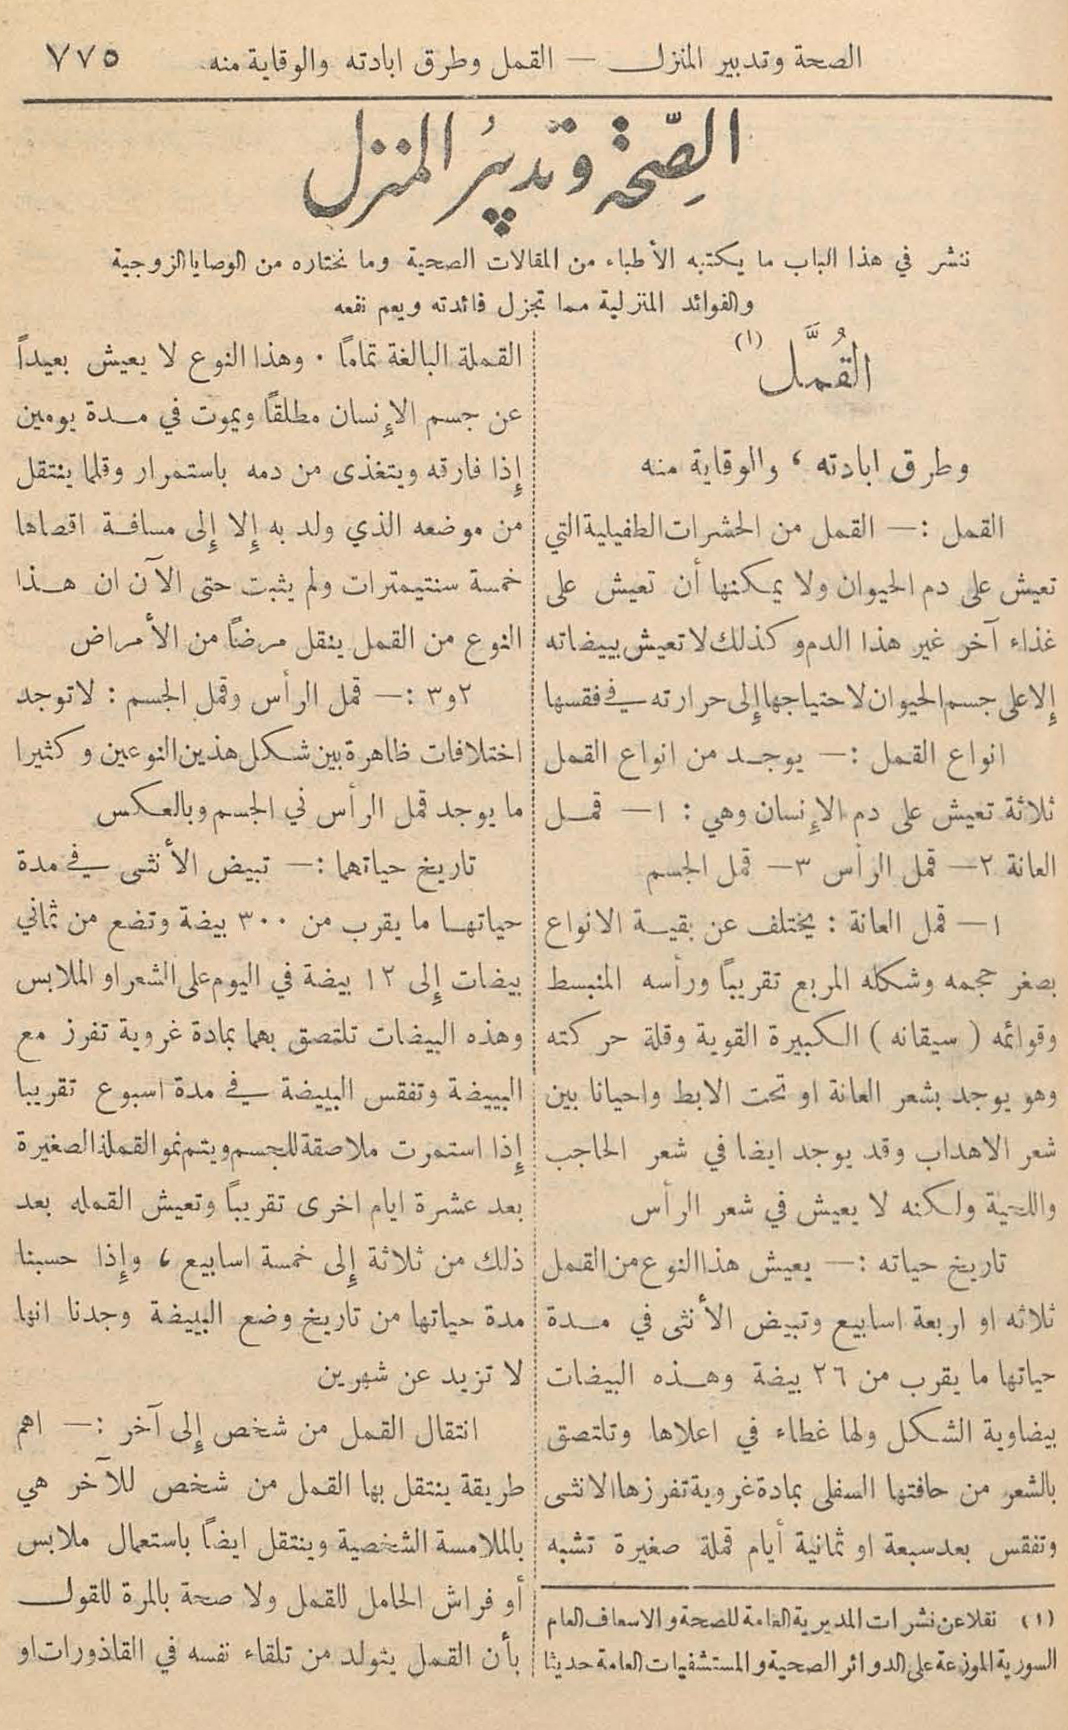 الصحة وتدبير المنزل — القمل وطرق ابادته والوقاية منه ٧٧٥
الصّحة وتدبيرُ المنزل
ننشر في هذا الباب ما يكتبه الأطباء من المقالات الصحية وما نختاره من الوصايا الزوجية
والفوائد المنزلية مما تجزل فائدته ويعم نفعه
القُمَّل (١)
وطرق ابادته ، والوقاية منه
القمل :— القمل من الحشرات الطفيلية التي
تعيش على دم الحيوان ولا يمكنها أن تعيش على
غذاء آخر غير هذا الدم وكذلك لا تعيش بييضاته
إلا على جسم الحيوان لاحتياجها إلى حرارته في فقسها
انواع القمل :— يوجد من انواع القمل
ثلاثة تعيش على دم الإنسان وهي : ١— قمل
العانة ٢— قمل الرأس ٣— قمل الجسم
١— قمل العانة : يختلف عن بقية الانواع
بصغر حجمه وشكله المربع تقريباً ورأسه المنبسط
وقوائمه ( سيقانه ) الكبيرة القوية وقلة حركته
وهو يوجد بشعر العانة او تحت الابط واحيانا بين
شعر الاهداب وقد يوجد ايضا في شعر الحاجب
واللحية ولكنه لا يعيش في شعر الرأس
تاريخ حياته :— يعيش هذا النوع من القمل
ثلاثه او اربعة اسابيع وتبيض الأنثى في مدة
حياتها ما يقرب من ٢٦ بيضة وهذه البيضات
بيضاوية الشكل ولها غطاء في اعلاها وتلتصق
بالشعر من حافتها السفلى بمادة غروية تفرزها الانثى
وتفقس بعد سبعة او ثمانية أيام قملة صغيرة تشبه
(١) نقلا عن نشرات المديرية العامة للصحة والاسعاف العام
السورية الموزعة على الدوائر الصحية والمستشفيات العامة حديثا
القملة البالغة تماماً . وهذا النوع لا يعيش بعيداً
عن جسم الإنسان مطلقاً ويموت في مدة يومين
إذا فارقه ويتغذى من دمه باستمرار وقلما ينتقل
من موضعه الذي ولد به إلا إلى مسافة اقصاها
خمسة سنتيمترات ولم يثبت حتى الآن ان هذا
النوع من القمل ينقل مرضاً من الأمراض
٢و٣ :— قمل الرأس وقمل الجسم : لا توجد
اختلافات ظاهرة بين شكل هذين النوعين وكثيرا
ما يوجد قمل الرأس في الجسم وبالعكس
تاريخ حياتهما :— تبيض الأنثى في مدة
حياتها ما يقرب من ٣٠٠ بيضة وتضع من ثماني
بيضات إلى ١٢ بيضة في اليوم على الشعر او الملابس
وهذه البيضات تلتصق بهما بمادة غروية تفرز مع
البييضة وتفقس البييضة في مدة اسبوع تقريبا
إذا استمرت ملاصقة للجسم ويتم نمو القملة الصغيرة
بعد عشرة ايام اخرى تقريباً وتعيش القمله بعد
ذلك من ثلاثة إلى خمسة اسابيع ، وإذا حسبنا
مدة حياتها من تاريخ وضع البييضة وجدنا انها
لا تزيد عن شهرين
انتقال القمل من شخص إلى آخر :— اهم
طريقة ينتقل بها القمل من شخص للآخر هي
بالملامسة الشخصية وينتقل ايضاً باستعمال ملابس
أو فراش الحامل للقمل ولا صحة بالمرة للقول
بأن القمل يتولد من تلقاء نفسه في القاذورات او